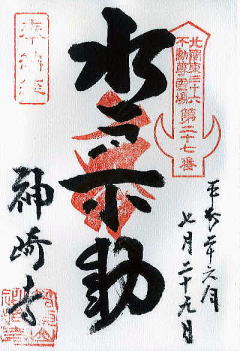 北関東三十六
不動尊霊場
第二十七番
平成二十六年
七月二十九日
水 不動
奉納経
神崎寺